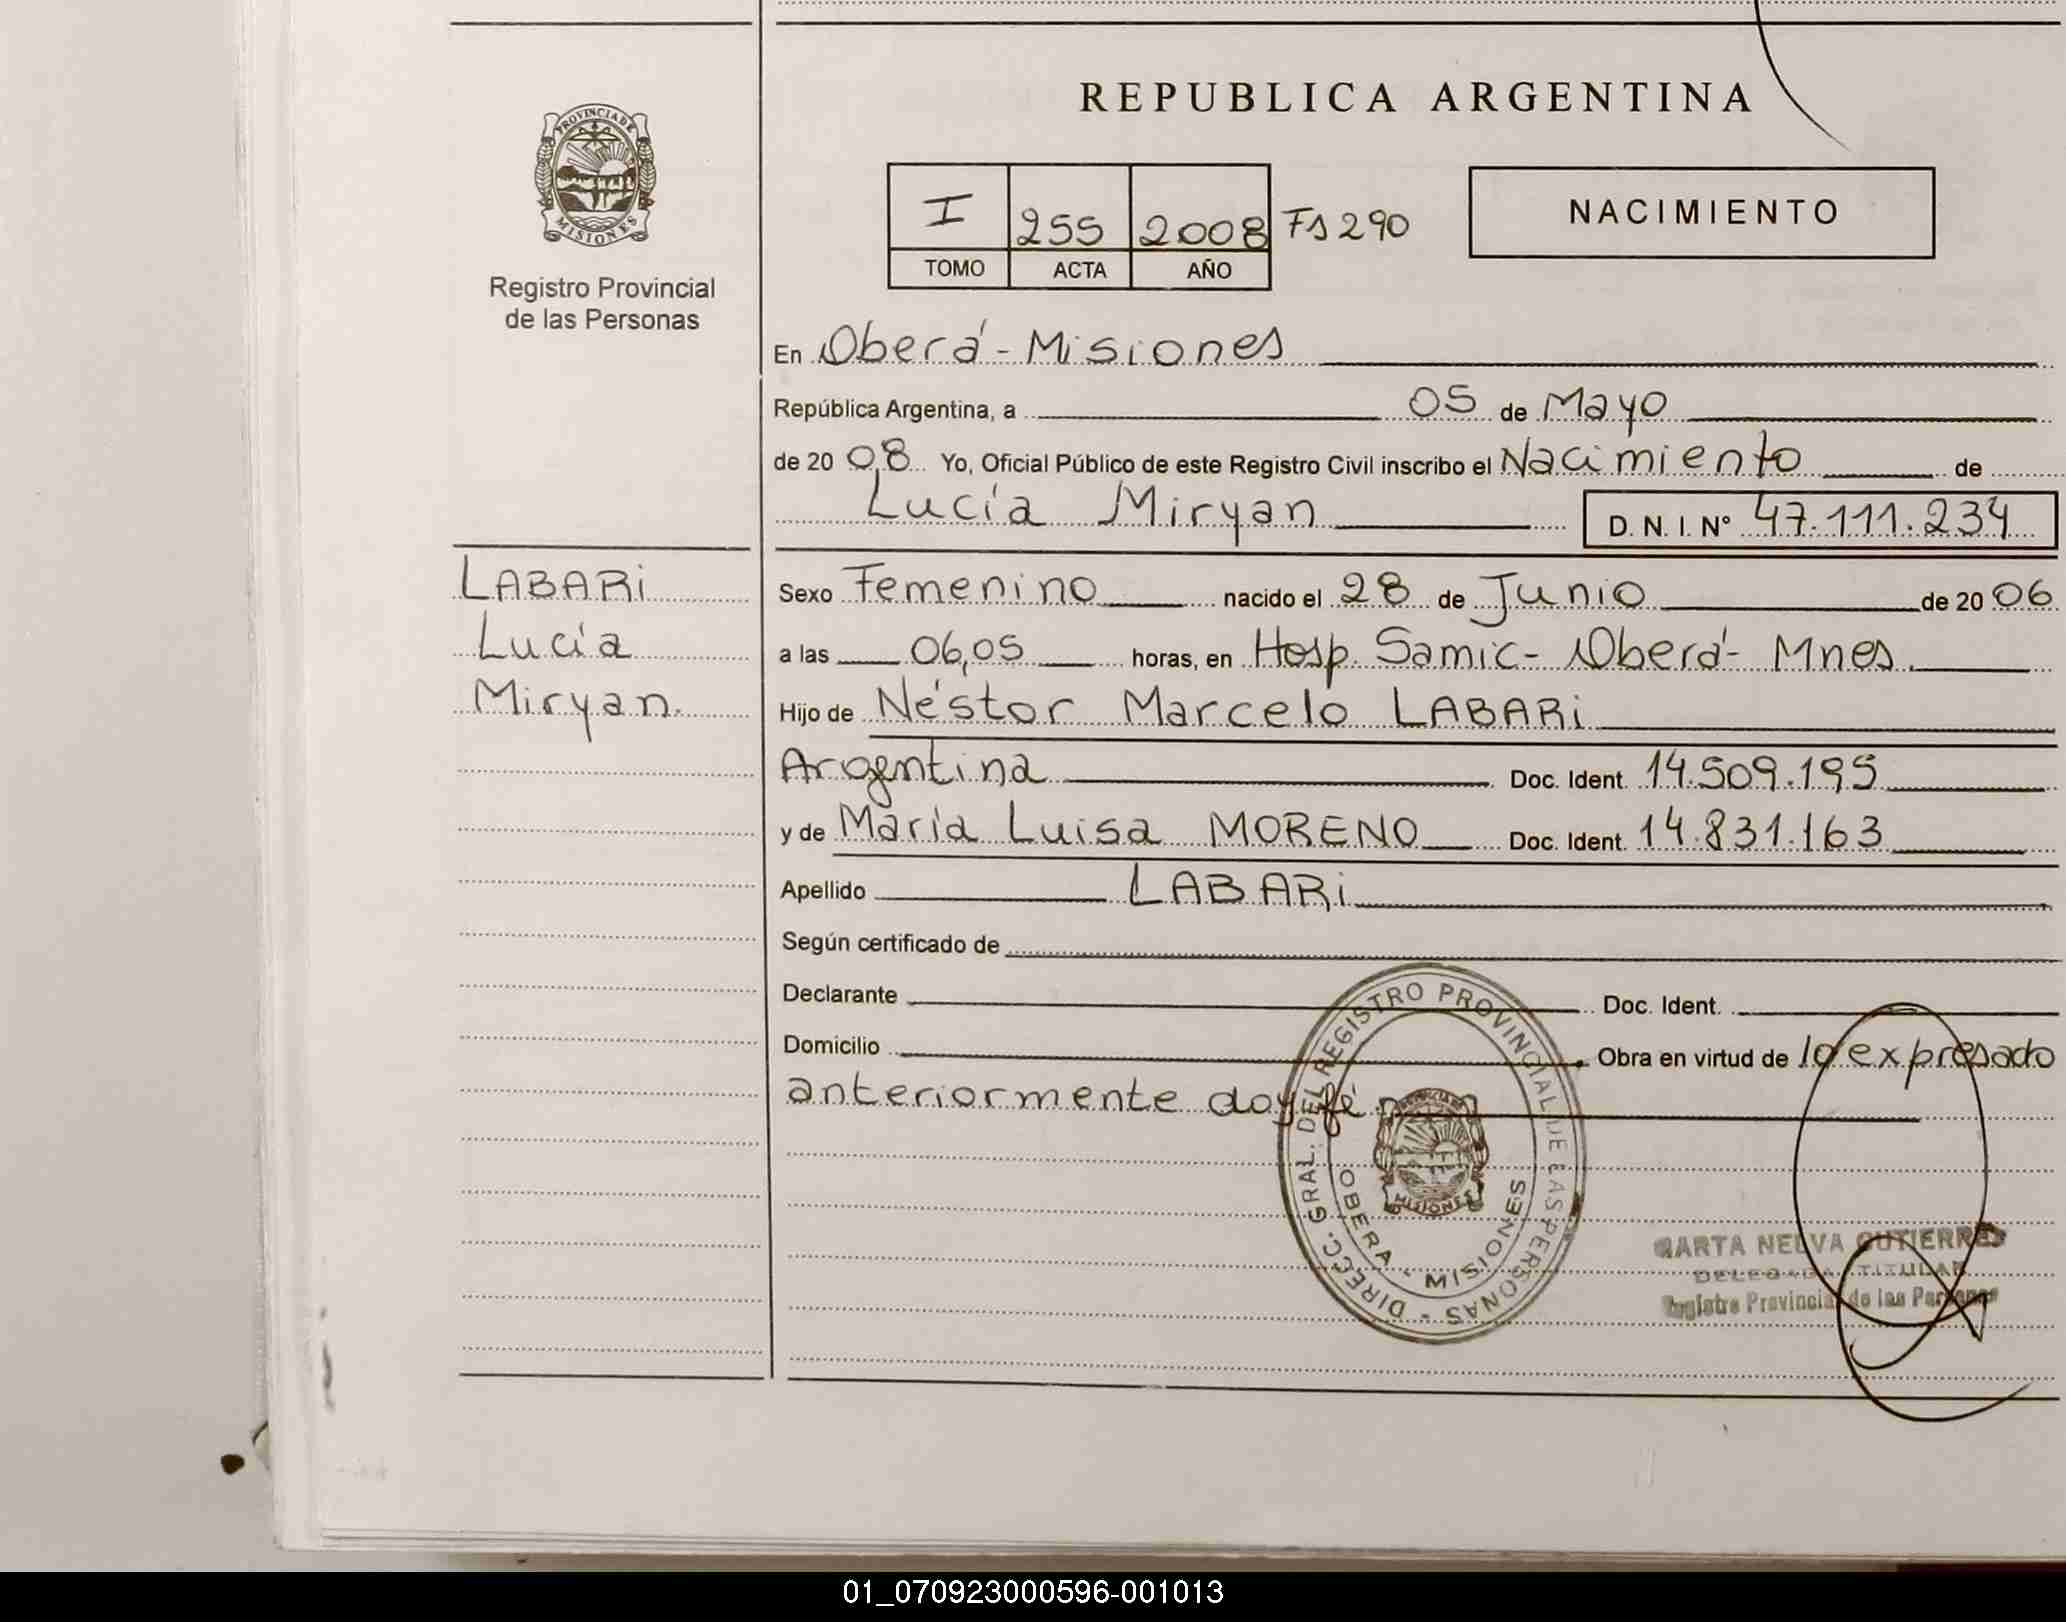 REPUBLICA ARGENTINA
PROVINCIA DE
MISIONES
Registro Provincial
de las Personas
I 255 2008 Fs 290
TOMO ACTA AÑO
NACIMIENTO
En Oberá - Misiones
República Argentina, a 05 de Mayo
de 20 08 Yo, Oficial Público de este Registro Civil inscribo el Nacimiento de
Lucía Miryan D. N. I. Nº 47.111.234
LABARi
Lucía
Miryan.
Sexo Femenino nacido el 28 de Junio de 20 06
a las 06,05 horas, en Hosp. Samic - Oberá - Mnes.
Hijo de Néstor Marcelo LABARi
Argentina Doc. Ident. 14.509.195
y de María Luisa MORENO Doc. Ident. 14.831.163
Apellido LABARi
Según certificado de
Declarante Doc. Ident.
Domicilio Obra en virtud de lo expresado
anteriormente doy fé
DIRECC. GRAL. DEL REGISTRO PROVINCIAL DE LAS PERSONAS -
OBERA - MISIONES
MISIONES
NELVA GUTIERRES
DELEGADA TITULAR
Registro Provincial de las Personas
01_070923000596-001013